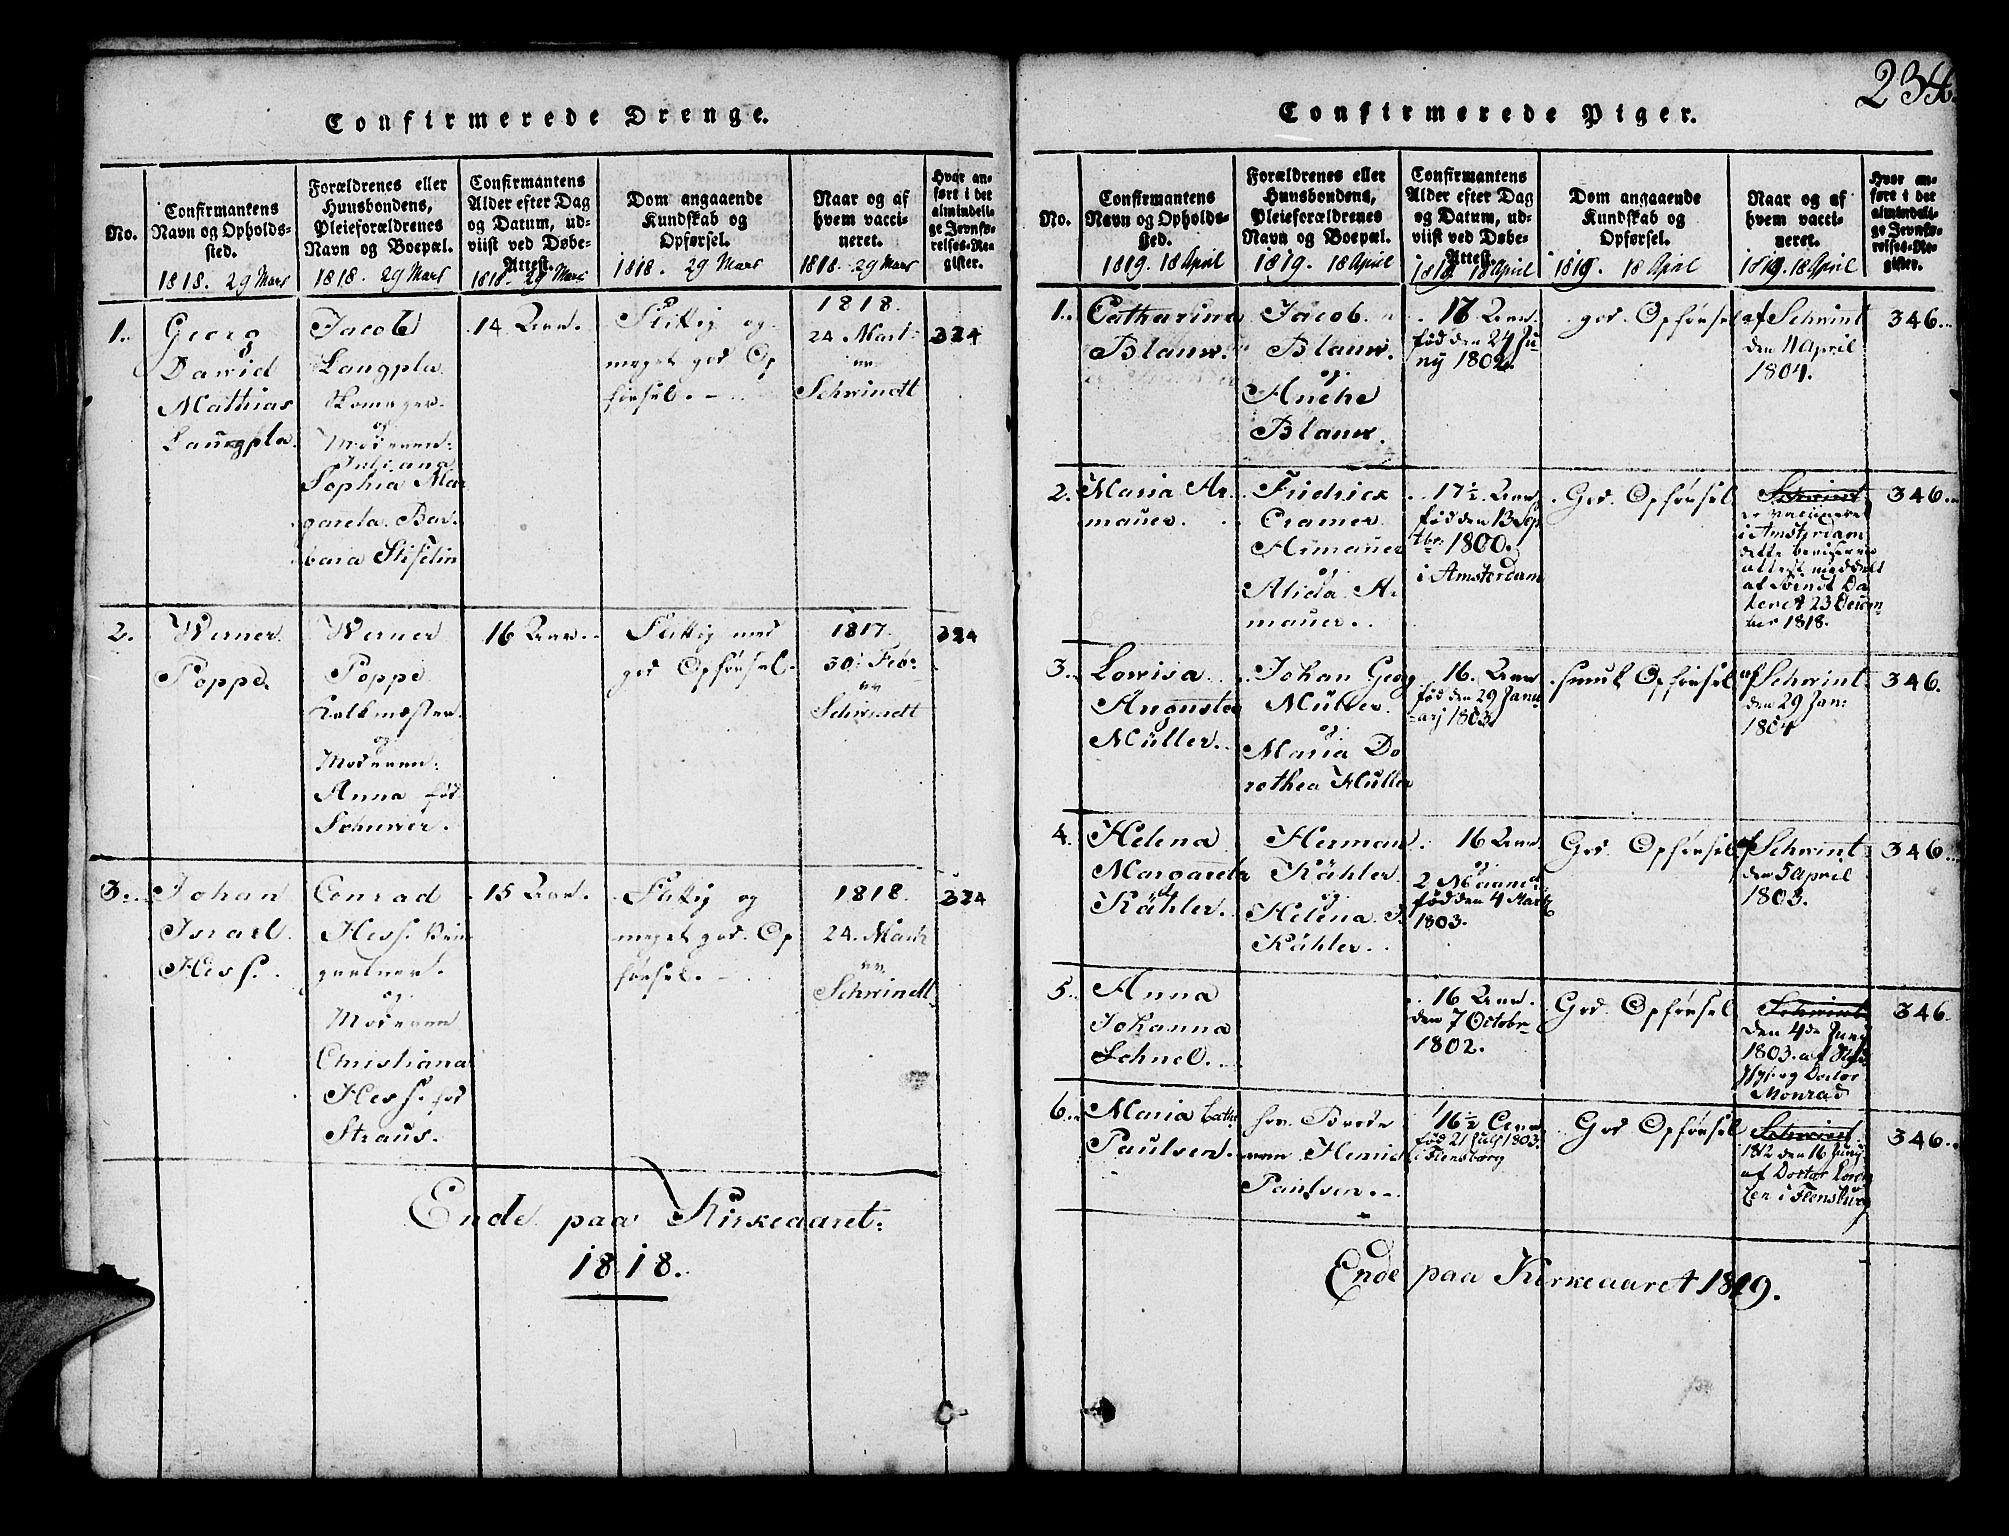 234.
Confirmerede Drenge.
No.
Confirmantens
Navn og Opholds-
sted.
1818. 29 Mars
Forældrenes eller
Huusbondens,
Pleieforældrenes
Navn og Boepæl.
1818. 29 Mars
Confirmantens
Alder efter Dag
og Datum, ud-
viist ved Døbe-
Attest.
1818. 29 Mars
Dom angaaende
Kundskab og
Opførsel.
1818. 29 Mars
Naar og af
hvem vacci-
neret.
1818. 29 Mars
Hvor an-
ført i det
almindeli-
ge Jevnfø-
relses-Re-
gister.
1.
Georg
David
Mathias
Laugpla.
Jacob
Laugpla
og
Moderen:
Juliana
Sophia Mar
gareta Bar
bara Stiselin
14 Aar.
Flittig og
meget god Op
førsel.
1818.
24 Mart:
Schwindt
324
2.
Werner
Poppe.
Werner
Poppe
og
Moderen:
Anna fød
Schuwer.
16 Aar.
Flittig med
god Opførsel.
1817.
30 Feb:
Schwindt
324
3.
Johan
Israel
Hess.
Conrad
Hess.
og
Moderen
Christiana
Hess. fød
Straus.
15 Aar.
Flittig og
meget god Op
førsel.
1818.
24. Martz
Schwindt
324
Ende paa Kirkeaaret:
1818.
Confirmerede Piger.
No.
Confirmantens
Navn og Opholds-
sted.
1819. 18 April
Forældrenes eller
Huusbondens,
Pleieforældrenes
Navn og Boepæl.
1819. 18 April
Confirmantens
Alder efter Dag
og Datum, ud-
viist ved Døbe-
Attest.
1819 18 April
Dom angaaende
Kundskab og
Opførsel.
1819. 18 April
Naar og af
hvem vacci-
neret.
1819. 18 April
Hvor an-
ført i det
almindeli-
ge Jevnfø-
relses-Re-
gister.
1.
Catharina
Blauw.
Jacob
Blauw.
og
Anche
Blauw.
17 Aar
fød den 24 Ju-
ny 1802.
god Opførsel
af Schwint
den 11 April
1804.
346.
2.
Maria Ar
mauer.
Fridrick
Cramer
Armauer
og
Alida Ar
mauer.
17½ Aar
fød den 13 Sep
tbr 1800.
i Amsterdam
God Opførsel
Schwint
er vaccineret
i Amsterdam
dette beviser en
attest meddelt
af Svindt Da
teret 23 Decem-
ber 1818.
346.
3.
Lowisa
Augusta
Müller.
Johan Georg
Müller
og
Maria Do
rothea Müller
16. Aar
fød den 29 Janu
arj 1803.
smuk Opførsel
af Schwint
den 29 Jan:
1804
346.
4.
Helena
Margareta
Kähler.
Herman
Kähler
og
Helena
Kähler.
16 Aar
og
2 Maaned
fød den 4 Martz
1803.
God Opførsel
af Schwint
den 5 April
1803.
346.
5.
Anna
Johanna
Schnel.
16 Aar.
den 7 Octobr
1802.
God Opførsel
Schwint
den 4de Juny
1803. af
og Doctor
Monrad
346.
6.
Maria Cath:
Paulsen.
Henric
Paulsen.
16½ Aar
fød 21 July 1803.
i Flensborg
God Opførsel
Schwint
1812 den 16 Juny
af Doctor Loren
zen i Flensburg
346.
Ende paa Kirkeaaret 1819.